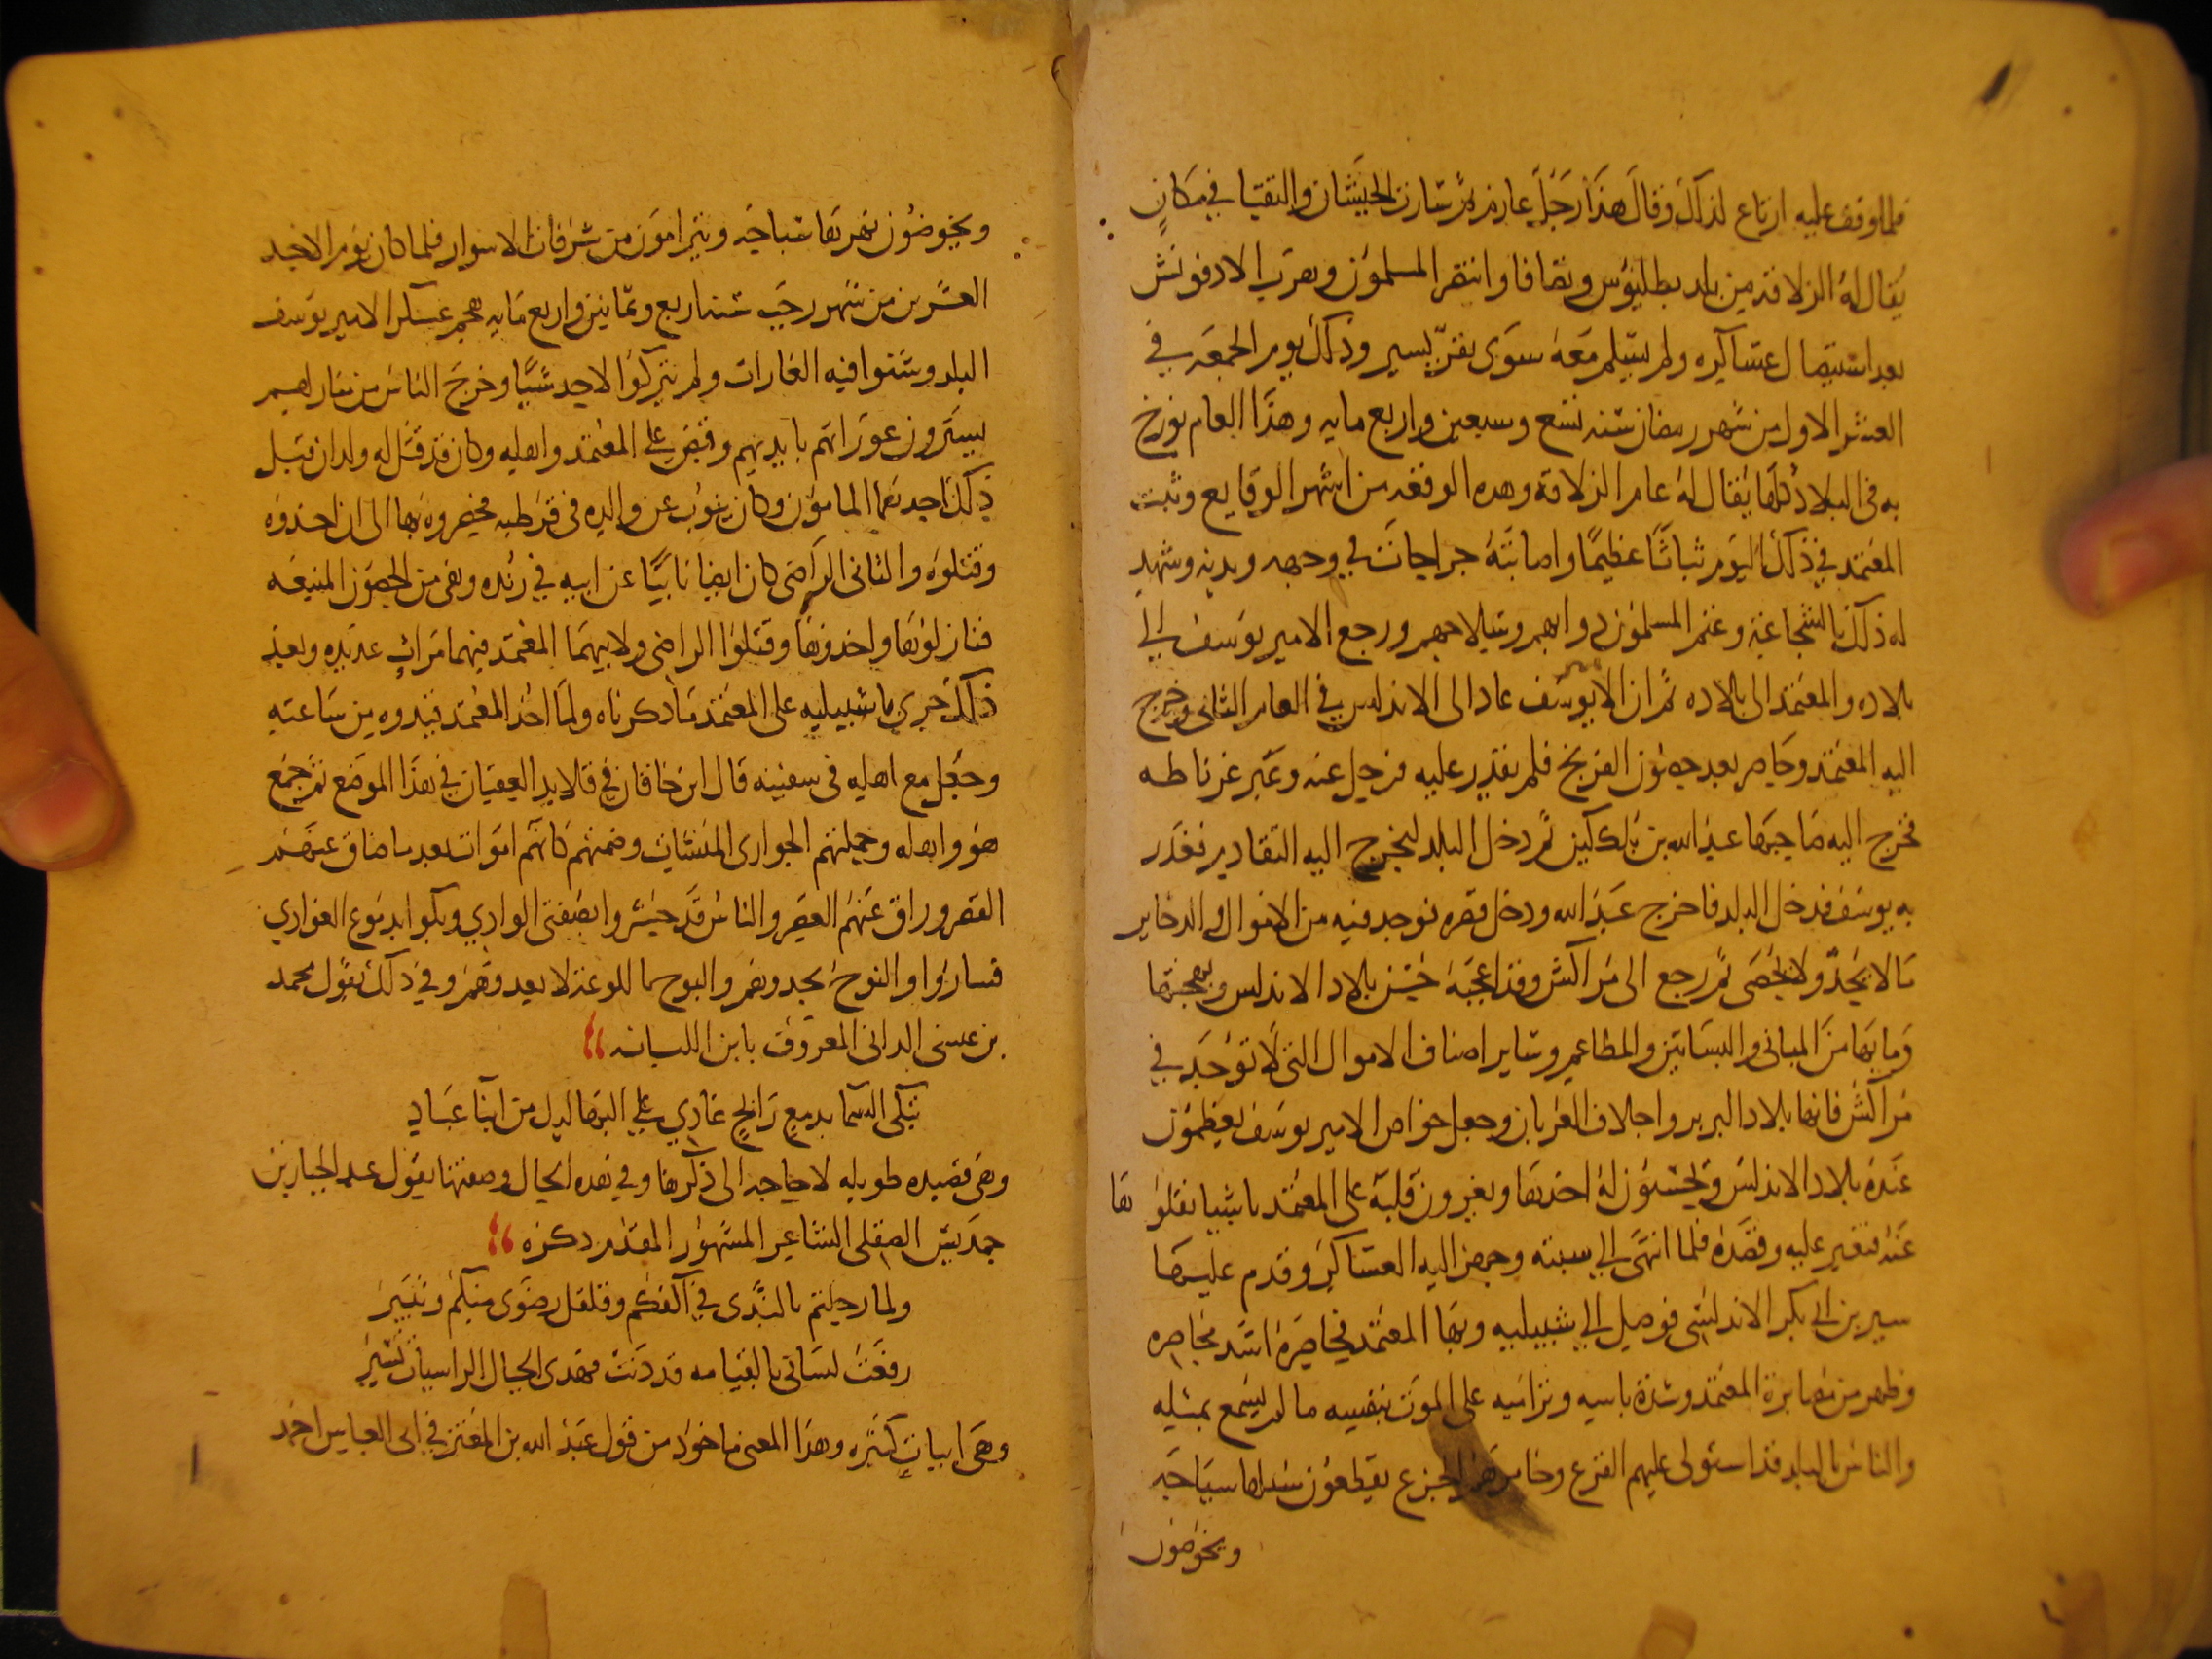 فلما وقف عليه ارتاع لذلك وقال هذا رجل عازم ثم سارت الجيشان والتقيا في مكان
يقال له الزلاقة من بلد بطليوس وتصافا وانتصر المسلمون وهرب الادفونش
بعد استيصال عساكره ولم يسلم معه سوى نفر يسير وذلك يوم الجمعة في
العشر الاول من شهر رمضان سنه تسع وسبعين واربع مايه وهذا العام يورخ
به في البلاد كلها يقال له عام الزلاقة وهده الوقعه من اشهر الوقايع وثبت
المعتمد في ذلك اليوم ثباتا عظيما واصابته جراحات في وجهه وبدنه وشهد
له ذلك بالشجاعة وغنم المسلمون دوابهم وسلاحهم ورجع الامير يوسف الي
بلاده والمعتمد الى بلاده ثم ان الامير يوسف عاد الى الاندلس في العام الثاني وخرج
اليه المعتمد وحاصر بعد حصون الفرنج فلم يقدر عليه فرحل عنه وعبر غرناطه
فخرج اليه صاحبها عبد الله بن بلكين ثم دخل البلد ليخرج اليه التقادير فغدر
به يوسف فدخل البلد فاخرج عبد الله ودخل قصره فوجد فيه من الاموال والدخاير
ما لا يحد ولا يحصى ثم رجع الى مراكش وقد اعجبه حسن بلاد الاندلس وبهجتها
وما بها من المباني والبساتين والمطاعم وساير اصناف الاموال التي لا توجد في
مراكش فانها بلاد البربر واجلاف العربان وجعل خواص الامير يوسف يعظمون
عنده بلاد الاندلس ويحسنون له اخدها ويغيرون قلبه على المعتمد باشيا نقلوها
عنه فتغير عليه وقصده فلما انتهى الي سبته وجهز اليه العساكر وقدم عليها
سير بن ابي بكر الاندلسي فوصل الي اشبيليه وبها المعتمد فحاصره اشد محاصره
وظهر من مصابرة المعتمد وشدة باسه وتراميه على الموت بنفسه ما لم يسمع بمثله
والناس بالبلد قد استولى عليهم الفزع وخامرهم الجزع يقطعون سبلها سياحه
ويخوضون
ويخوضون نهرها سباحه ويترامون من شرفات الاسوار فلما كان يوم الاحد
العشرين من شهر رجب سنه اربع وثمانين واربع مايه هجم عسكر الامير يوسف
البلد وشنوا فيه الغارات ولم يتركوا لاحد شيا وخرج الناس من منازلهم
يسترون عوراتهم بايديهم وقبض على المعتمد واهله وكان قد قتل له ولدان قبل
ذلك احدهما المامون وكان ينوب عن والده في قرطبه فحصروه بها الى ان اخدوه
وقتلوه والثاني الراضى كان ايضا نايبا عن ابيه في رنده وهى من الحصون المنيعه
فنازلوها واخدوها وقتلوا الراضى ولابيهما المعتمد فيهما مراث عديده وبعد
ذلك جري باشبيليه على المعتمد ما دكرناه ولما اخد المعتمد قيدوه من ساعته
وجعل مع اهله في سفينه قال ابن خاقان في قلايد العقيان في هذا الموضع ثم جمع
هو واهله وحملتهم الجواري المنشات وضمتهم كانهم اموات بعد ما ضاق عنهم
القصر وراق عنهم العصر والناس قد حشروا بضفتي الوادي وبكوا بدموع الغوادي
فساروا والنوح يحدوهم والبوح باللوعة لا يعدوهم وفي ذلك يقول محمد
بن عيسى الداني المعروف بابن اللبانه
تبكي السما بدمع رايح غادي على البهاليل من ابنا عباد
وهي قصيده طويله لا حاجه الى ذكرها وفي هده الحال وصفتها يقول عبد الجبار بن
حمديس الصقلى الشاعر المشهور المقدم دكره
ولما رحلتم بالندى في اكفكم وقلقل رضوى منكم وثبير
رفعت لسانى بالقيامه قد دنت فهدى الجبال الراسيات تسير
وهي ابيات كثيره وهذا المعنى ماخود من قول عبد الله بن المعتز في ابى العباس احمد